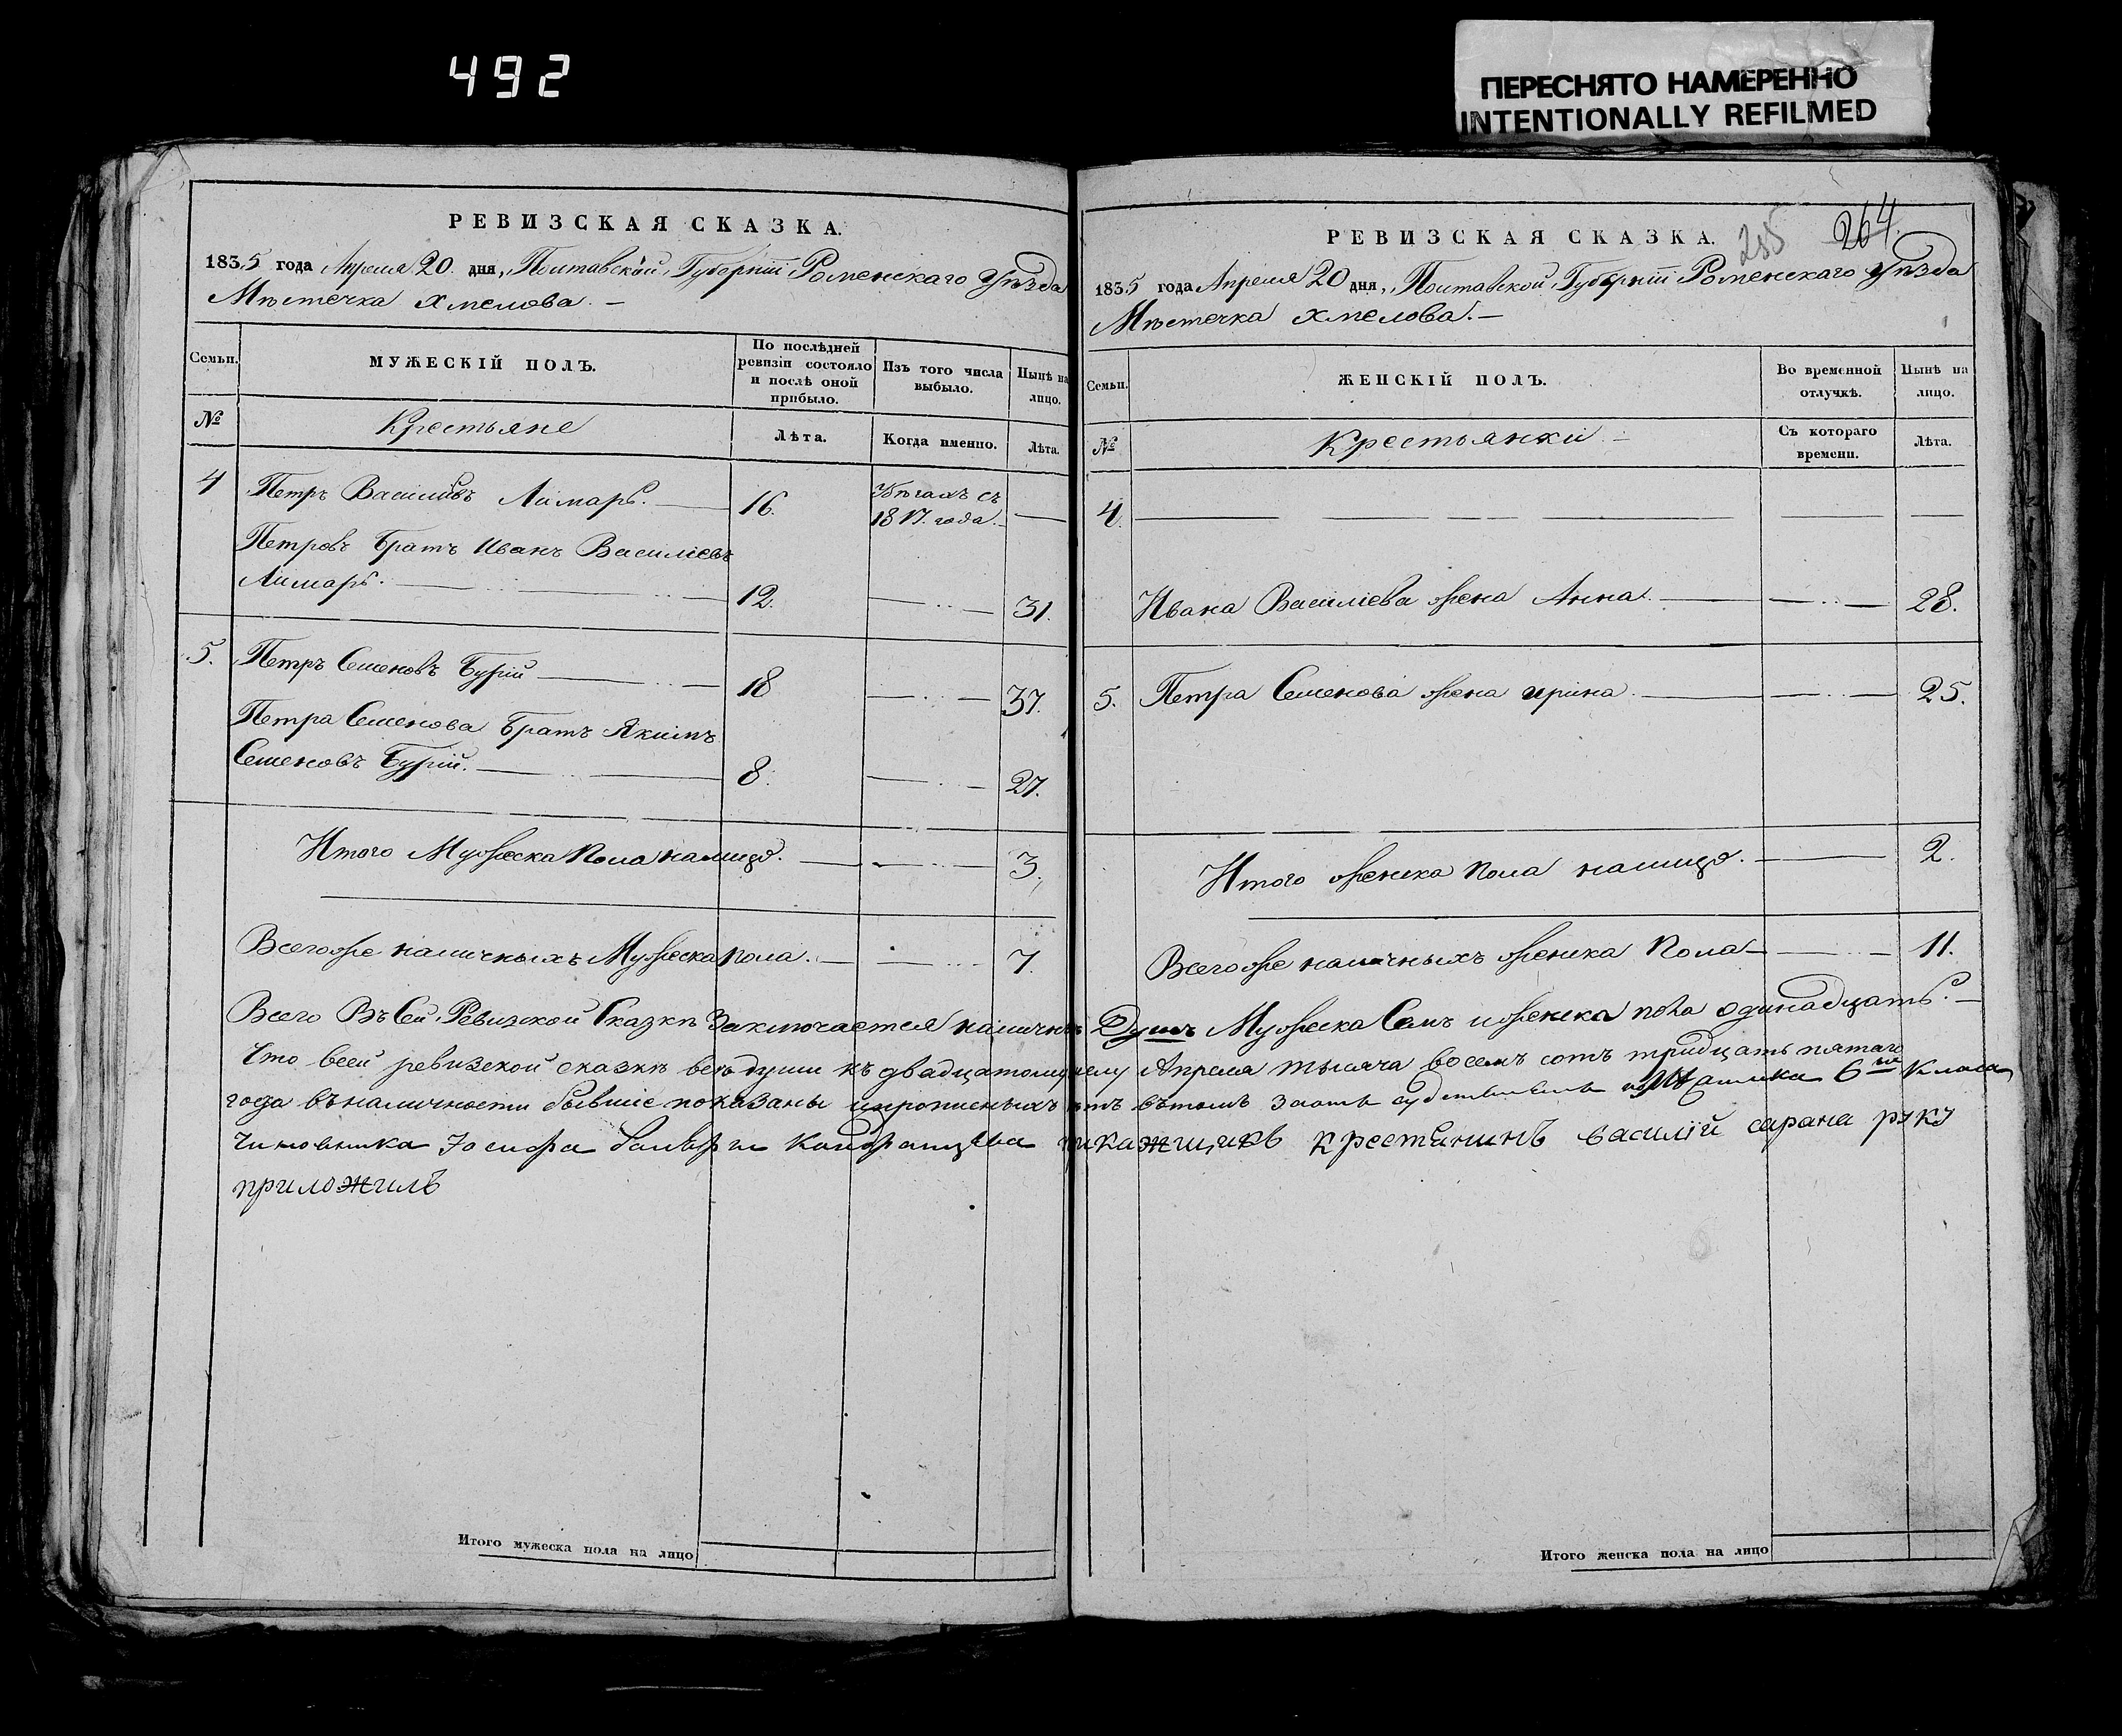 492
ПЕРЕСНЯТО НАМЕРЕННО
INTENTIONALLY REFILMED
РЕВИЗСКАЯ СКАЗКА.
1835 года Апреля 20. дня, Полтавской, Губерніи Роменскаго Уѣзда
Мѣстечка Хмелова. —
Семьи.
МУЖЕСКІЙ ПОЛЪ.
По послѣдней
ревизіи состояло
и послѣ оной
прибыло.
Изъ того числа
выбыло.
Нынѣ на
лицо.
№
Крестьяне
Лѣта.
Когда именно.
Лѣта.
4 Петръ Василіевъ Лимарь. — 16. Убѣгалъ съ
1817. года. —
Петровъ братъ Иванъ Василіевъ
Лимарь. — 12. — 31.
5. Петръ Семеновъ Бурій — 18 — 37.
Петра Семенова братъ Якимъ
Семеновъ Бурій. — 8. — 27.
Итого Мужеска пола налицо. — 3.
Всегоже наличныхъ Мужеска пола. — 7.
РЕВИЗСКАЯ СКАЗКА.
255 264.
1835 года Апреля 20 дня, Полтавской, Губерніи Роменскаго Уѣзда
Мѣстечка Хмелова. —
Семьи.
ЖЕНСКІЙ ПОЛЪ.
Во временной
отлучкѣ.
Нынѣ на
лицо.
№
Крестьянки —
Съ котораго
времени.
Лѣта.
4. — — — —
Ивана Василіева жена Анна. — 28.
5. Петра Семенова жена Ирина. — 25.
Итого женска пола налицо. — 2.
Всегоже наличныхъ женска пола — 11.
Всего Въ Сей Ревизской Сказкѣ Заключается наличныхъ Душъ Мужеска Семъ иженска пола одинадцать. —
Что всей ревизской сказкѣ всѣ души къ двадцатому Апреля тысяча восемъ сотъ тридцать пятаго
года въналичности бывшіе показаны ипрописныхъ нѣтъ вътомъ 6го класа
Чиновника Іосифа прикажщикъ крестянинъ василій сарана руку
приложилъ
Итого мужеска пола на лицо
Итого женска пола на лицо